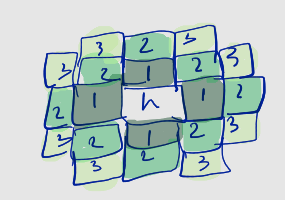 3 2 3
3 2 1 2 3
2 1 h 1 2
3 2 1 2 3
3 2 3